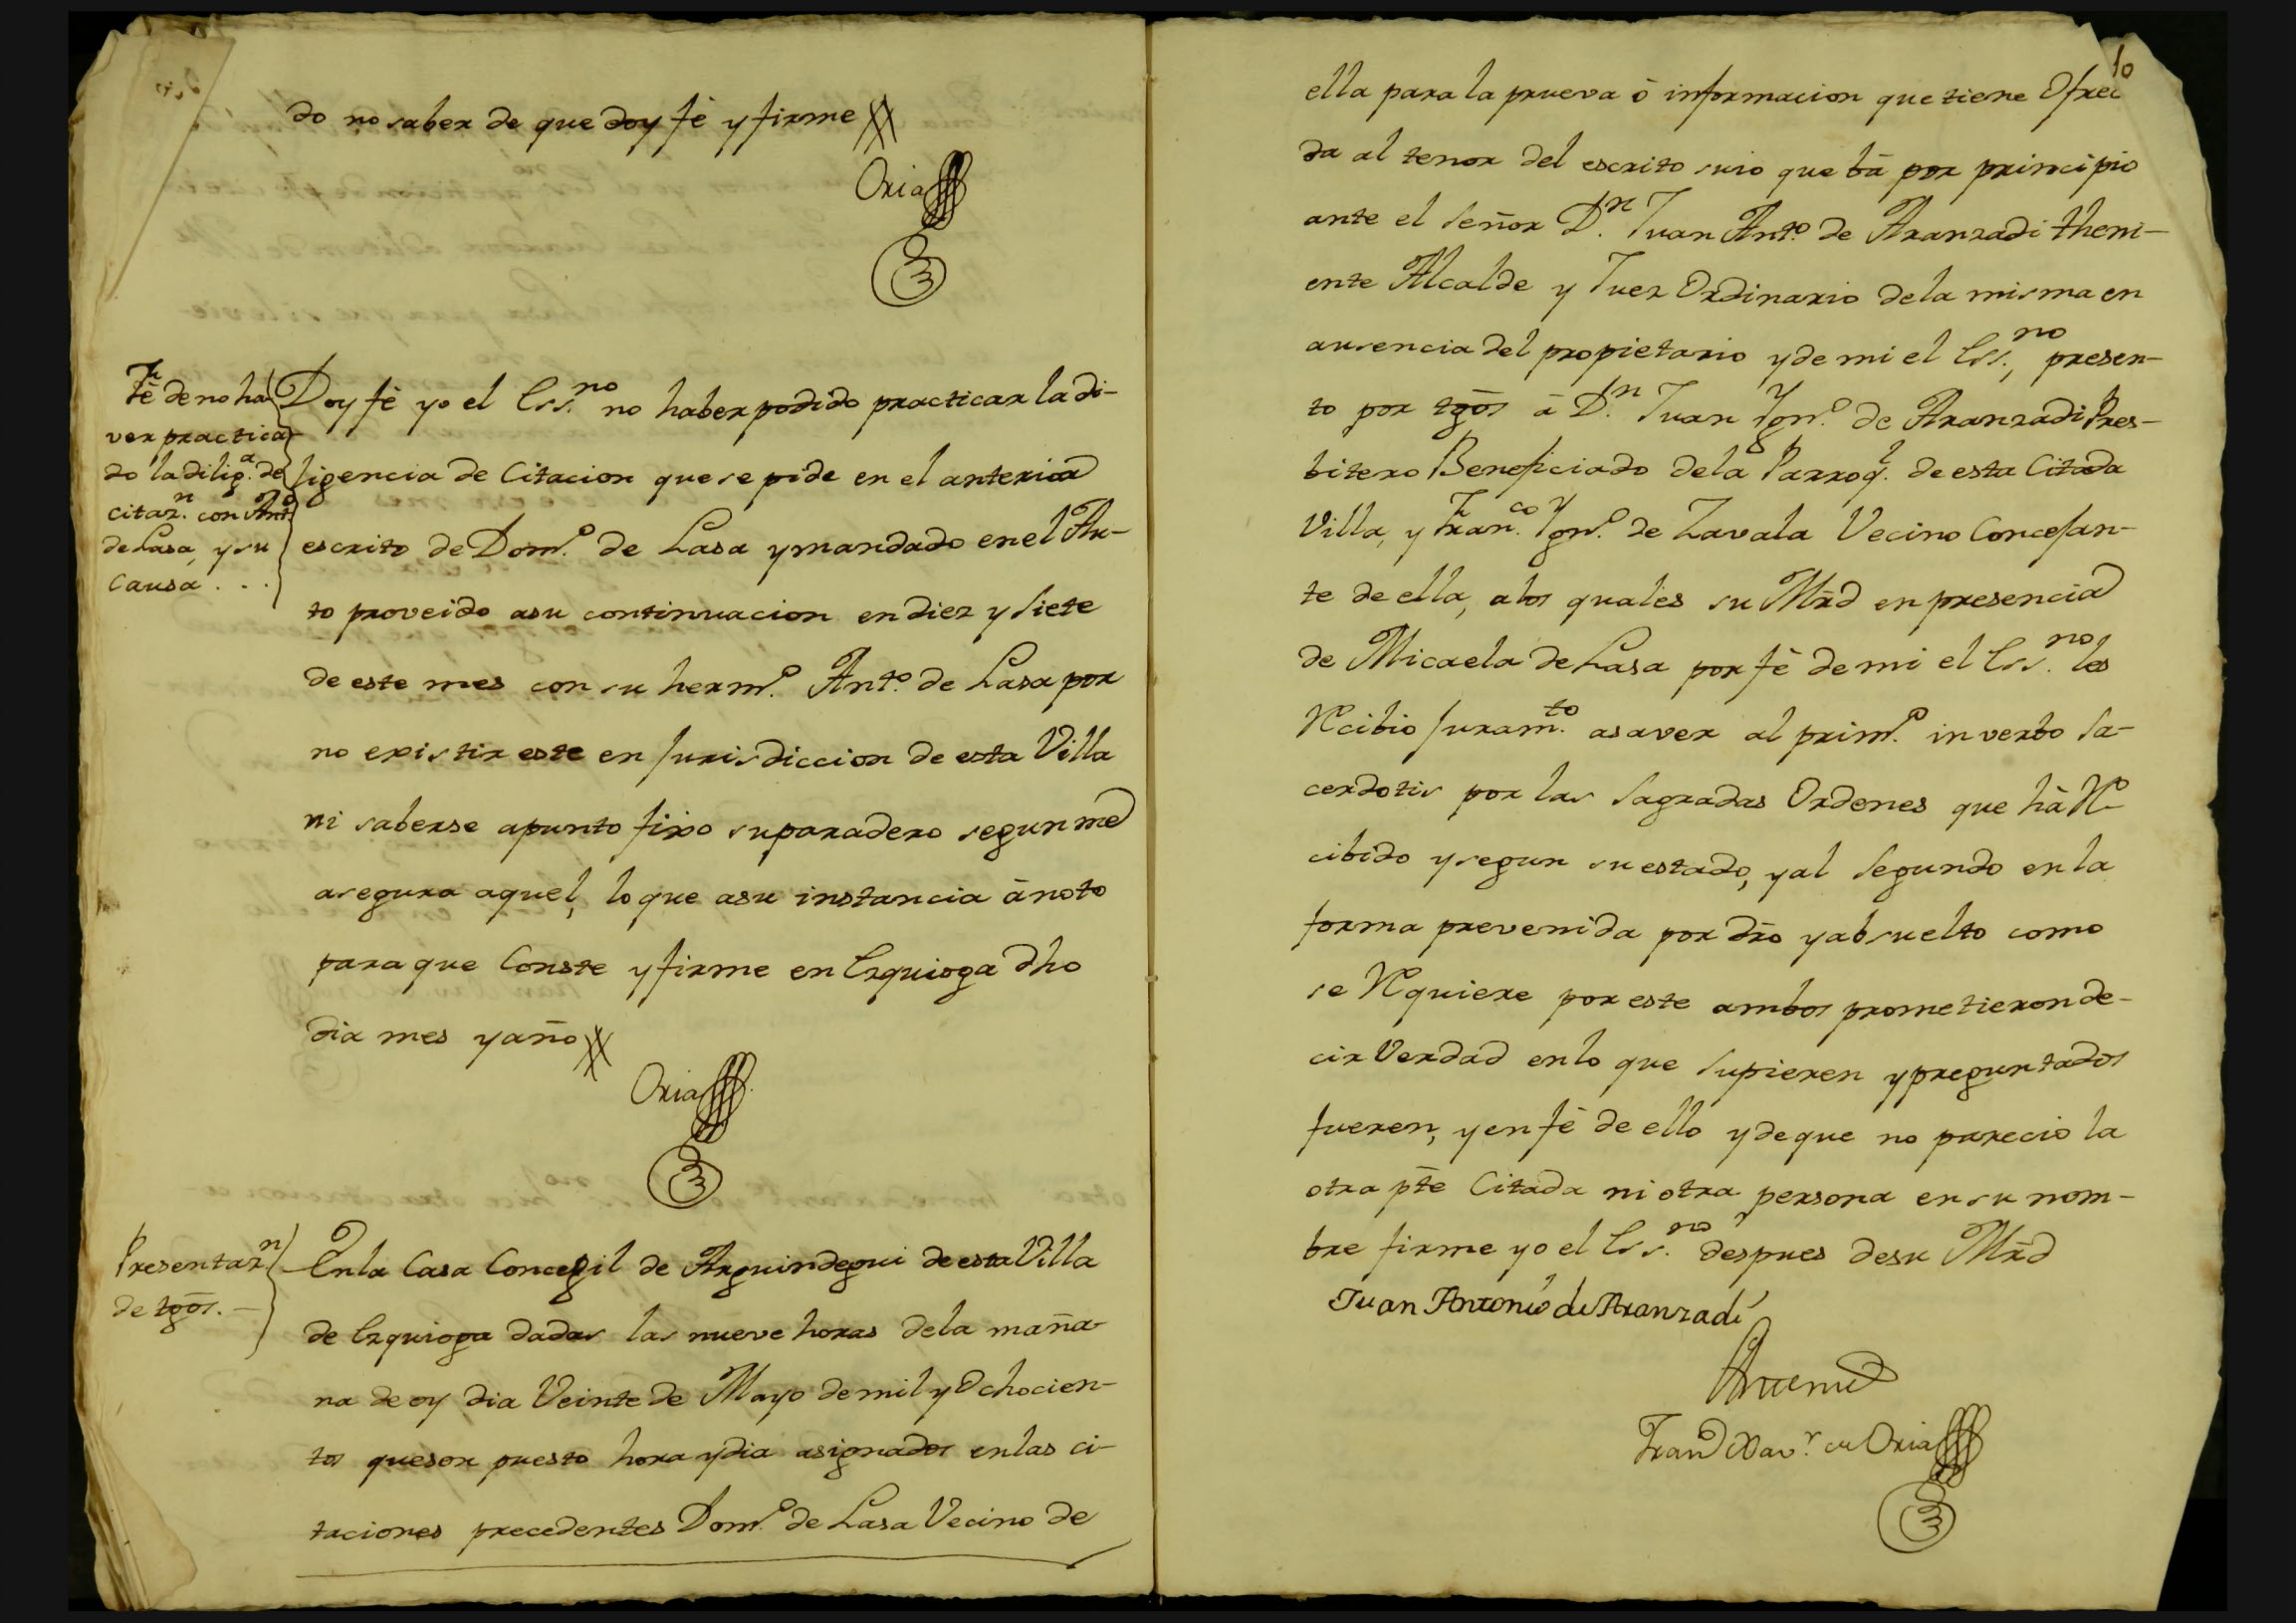 do no saber de que doy fé y firme
Oria
Fé de no ha
ver practica
do la dilig.ª de
citaz.n con Ant.º
de Lasa, y su
Causa . . .
Doy fé yo el Ess.no no haber podido practicar la di-
ligencia de Citacion que se pide en el anterior
escrito de Dom.º de Lasa y mandado en el Au-
to proveido a su continuacion en diez y Siete
de este mes con su herm.º Ant.º de Lasa por
no existir este en Jurisdiccion de esta Villa
ni saberse apunto fixo su paradero segun me
asegura aquel, lo que asu instancia ànoto
para que Conste y firme en Ezquioga dho
dia mes y año
Oria
Presentaz.n
de tgõs. —
En la Casa Concegil de Arguindegui de esta Villa
de Ezquioga dadas las nueve horas dela maña-
na de oy dia Veinte de Mayo de mil y Ochocien-
tos que son puesto hora y dia asignados en las ci-
taciones precedentes Dom.º de Lasa Vecino de
10
ella para la prueva ó informacion que tiene Ofreci
da al tenor del escrito suio que bà por principio
ante el Señor D.n Juan Ant.º de Aranzadi theni-
ente Alcalde y Juez Ordinario dela misma en
ausencia del propietario y de mi el Ess.no, presen-
to por tgõs à D.n Juan Ygn.º de Aranzadi Pres-
bitero Beneficiado dela Parroq.l de esta Citada
Villa, y Fran.co Ygn.º de Zavala Vecino Concejan-
te de ella, alos quales su Mrd en presencia
de Micaela de Lasa por fé de mi el Ess.no les
Recibio Juram.to asaver al prim.º in verbo Sa-
cerdotis por las Sagradas Ordenes que hà Re
cibido y segun su estado, y al Segundo en la
forma prevenida por dro y absuelto como
se Requiere por este ambos prometieron de-
cir Verdad en lo que Supieren y preguntados
fueren, y en fé de ello y de que no parecio la
otra pte Citada ni otra persona en su nom-
bre firme yo el Ess.no despues de su Mrd
Juan Antonio de Aranzadi
Antemi
Fran.co Xav.r de Oria